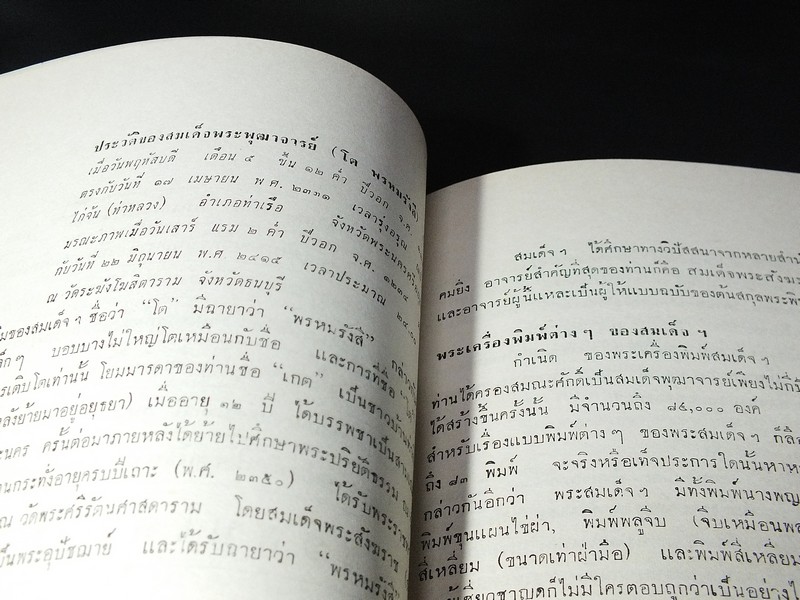 ประวัติของสมเด็จพระพุฒาจารย์ (โต พรหมรังสี)
เมื่อวันพฤหัสบดี เดือน ๕ ขึ้น ๑๒ ค่ำ ปีวอก จ.ศ.
ตรงกับวันที่ ๑๗ เมษายน พ.ศ. ๒๓๓๑ เวลารุ่งอรุณ
ไก่จัน (ท่าหลวง) อำเภอท่าเรือ จังหวัดพระนครศรี
มรณะภาพเมื่อวันเสาร์ แรม ๒ ค่ำ ปีวอก จ.ศ. ๑๒๓๔
กับวันที่ ๒๒ มิถุนายน พ.ศ. ๒๔๑๕ เวลาประมาณ ๒๔.๐๐
ณ วัดระฆังโฆสิตาราม จังหวัดธนบุรี
มของสมเด็จฯ ชื่อว่า “โต” มีฉายาว่า “พรหมรังสี” กล่าว
ล็กๆ บอบบางไม่ใหญ่โตเหมือนกับชื่อ และการที่ชื่อ “โต”
รเติบโตเท่านั้น โยมมารดาของท่านชื่อ “เกตุ” เป็นชาวบ้าน
ลังย้ายมาอยู่อยุธยา) เมื่ออายุ ๑๒ ปี ได้บรรพชาเป็นสาม
ะนคร ครั้นต่อมาภายหลังได้ย้ายไปศึกษาพระปริยัติธรรม ณ
นกระทั่งอายุครบปีเถาะ (พ.ศ. ๒๓๕๐) ได้รับพระรา
ณ วัดพระศรีรัตนศาสดาราม โดยสมเด็จพระสังฆราช
ป็นพระอุปัชฌาย์ และได้รับฉายาว่า “พรหมรังสี”
สมเด็จฯ ได้ศึกษาทางวิปัสสนาจากหลายสำนั
คมยิ่ง อาจารย์สำคัญที่สุดของท่านก็คือ สมเด็จพระสังฆ
และอาจารย์ผู้นี้แหละเป็นผู้ให้แบบฉบับของต้นสกุลพระพิ
พระเครื่องพิมพ์ต่างๆ ของสมเด็จฯ
กำเนิด ของพระเครื่องพิมพ์สมเด็จฯ
ท่านได้ครองสมณะศักดิ์เป็นสมเด็จพุฒาจารย์เพียงไม่กี่
ได้สร้างขึ้นครั้งนั้น มีจำนวนถึง ๘๔,๐๐๐ องค์
สำหรับเรื่องแบบพิมพ์ต่างๆ ของพระสมเด็จฯ ก็ลือ
ถึง ๘๓ พิมพ์ จะจริงหรือเท็จประการใดนั้นหาห
กล่าวกันอีกว่า พระสมเด็จฯ มีทั้งพิมพ์นางพญ
พิมพ์ขุนแผนไข่ผ่า, พิมพ์พลูจีบ (จีบเหมือนพล
สี่เหลี่ยม (ขนาดเท่าฝ่ามือ) และพิมพ์สี่เหลี่ยม
ผู้เชี่ยวชาญดก็ไม่มีใครตอบถูกว่าเป็นอย่างไ